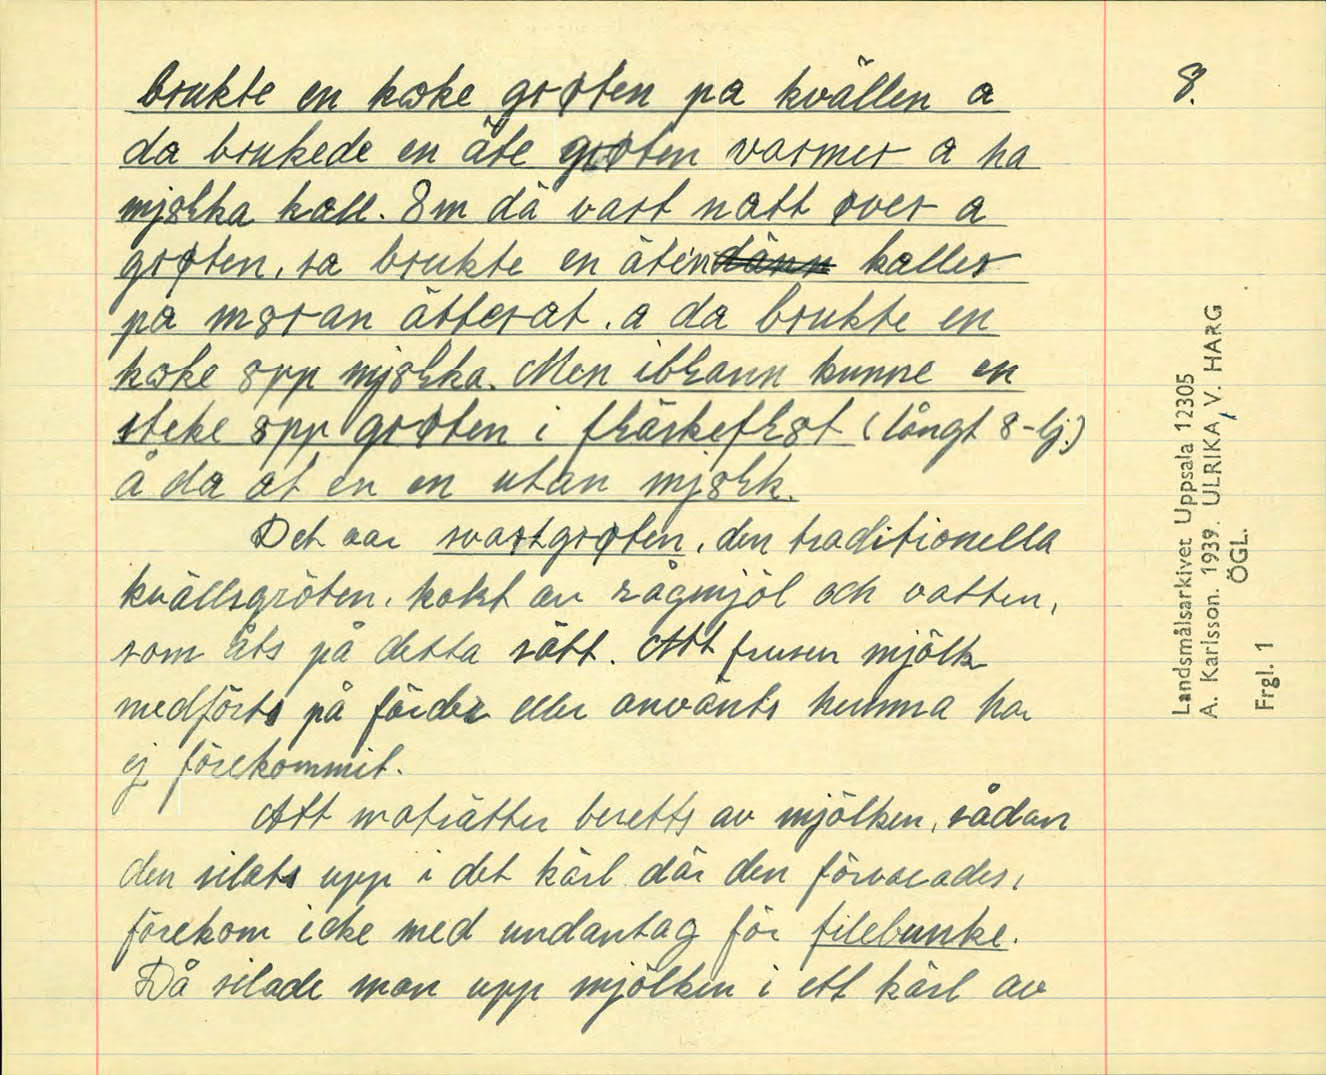 8.
brukte en koke grøten pa kvällen a
da brukede en äte grøten varmer a ha
mjölka kall. Som dä vart natt øver a
grøten, sa brukte en äten dänn kaller
pa moran ätterat, a da brukte en
koke opp mjölka. Men iblann kunne en
steke opp grøten i fläskeflot (långt o-lj.)
å da at en en utan mjölk.
Det var svartgrøten, den traditionella
kvällsgröten, kokt av rågmjöl och vatten,
som åts på detta sätt. Att frusen mjölk
medförts på färder eller använts hemma har
ej förekommit.
Att maträtter beretts av mjölken, sådan
den silats upp i det kärl där den förvarades,
förekom icke med undantag för filebunke.
Då silade man upp mjölken i ett kärl av
Landsmålsarkivet Uppsala 12305
A. Karlsson. 1939. ULRIKA, V. HARG
ÖGL.
Frgl. 1